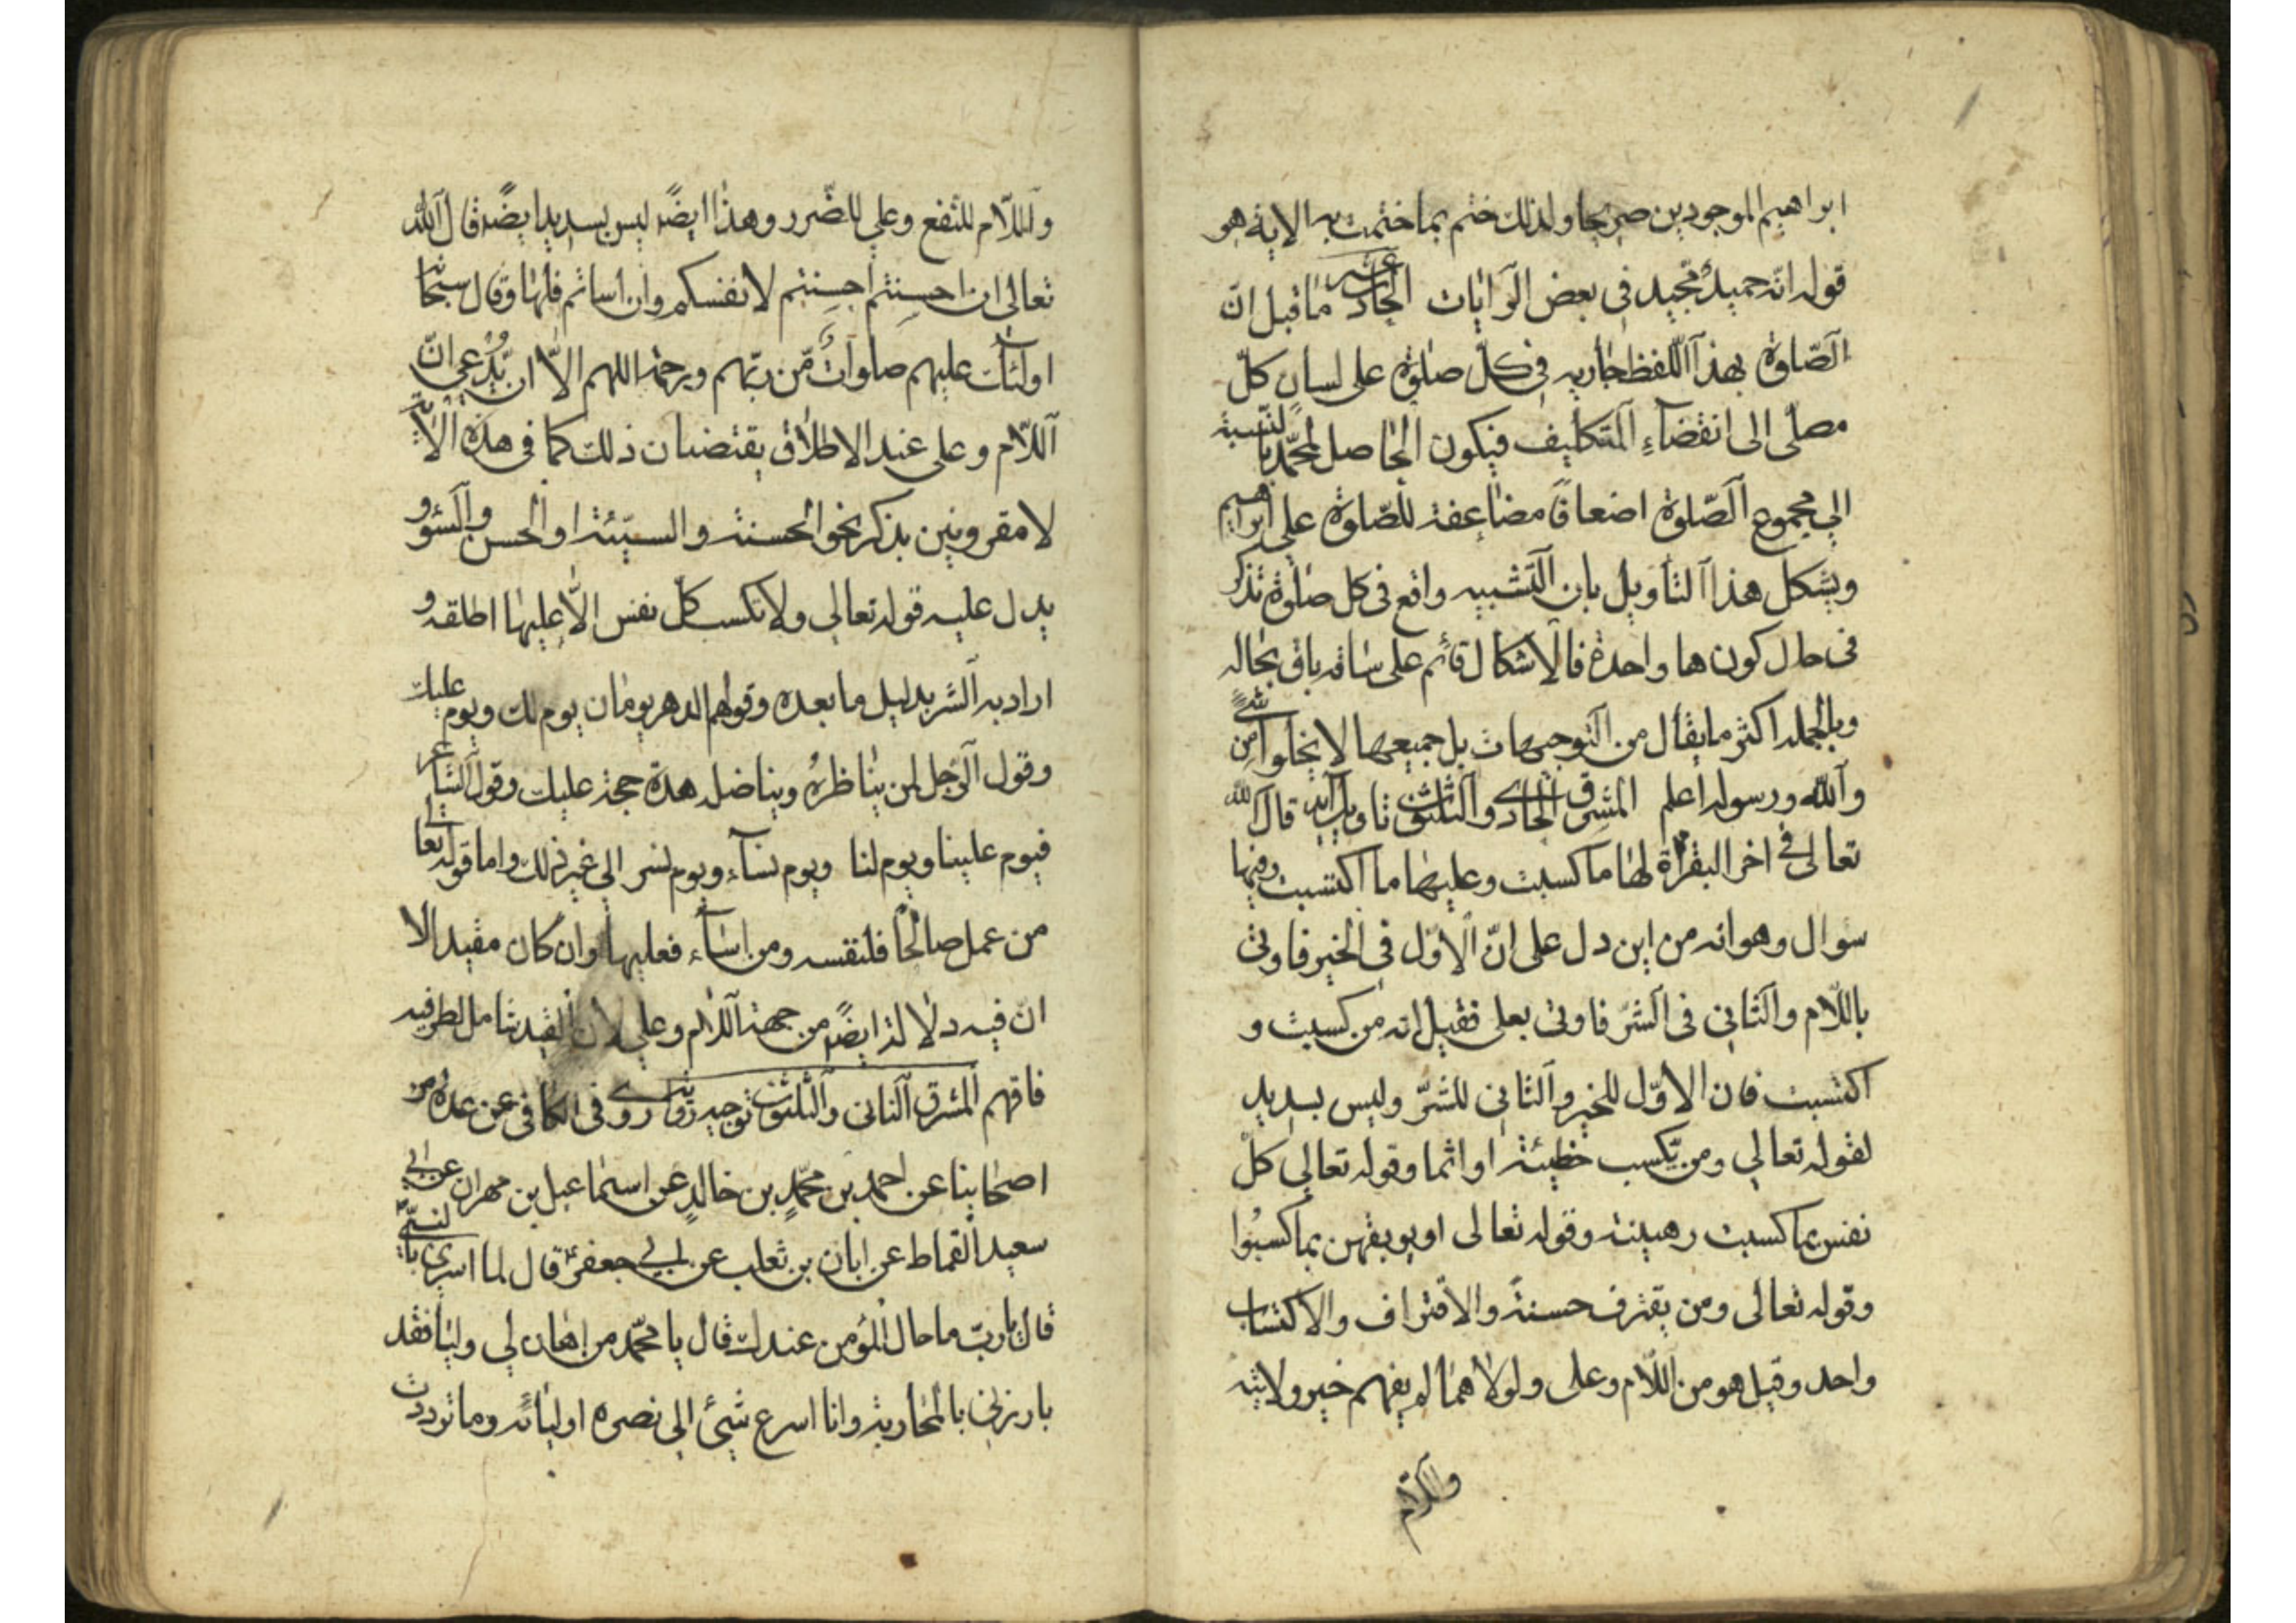 ابراهيم الموجودين صريحا ولذلك ختم بما ختمت به الاية هو
قوله انّه حميدٌ مجيد فى بعض الرّوايات الحادى عشر ما قيل انّ
الصّلوة بهذا اللّفظ جاريه فى كلّ صلوة على لسان كلّ
مصلّى الى انقضاءِ التكليف فيكون الحاصل لمحمّد بالنّسبة
الى مجموع الصّلوة اضعافًا مضاعفة للصّلوة على ابراهيم
ويشكل هذا التأويل بان التّشبيه واقع فى كل صلوة تذكر
فى حال كون ها واحدة فالاشكال قائم على ساقه باق بحاله
وبالجمله اكثر ما يقال من التّوجيهات بل جميعها لا يخلوا من شئ
والله ورسوله اعلم المشرق الحادى والثلثون تاويل آيه قال الله
تعالى فى اخر البقراة لها ما كسبت وعليها ما اكتسبت وفيها
سؤال وهو انه من اين دل على انّ الاوّل فى الخير فاوتى
باللّام والثانى فى الشّرّ فاوتى بعلى فقيل انه من كسبت و
اكتسبت فان الاوّل للخير والثانى للشرّ وليس بسديد
لقوله تعالى ومن يّكسب خطيئة او اثما وقوله تعالى كلّ
نفس بما كسبت رهينة وقوله تعالى او يوبقهن بما كسبُوا
وقوله تعالى ومن يقترف حسنةً والاقتراف والاكتساب
واحد وقيل هو من اللّام وعلى ولولا هما لم يفهم خير ولا
واللّام
واللّام للنّفع وعلى للضّرر وهذا ايضًا ليس بسديد ايضًا قال الله
تعالى ان احسنتم احسنتم لانفسكم وان اساتم فلها وقال سبحانه
اولئك عليهم صلواتٌ مّن ربّهم ورحمة اللهم الاّ ان يّدّعى انّ
اللّام وعلى عند الاطلاق يقتضيان ذلك كما فى هذه الاية
لا مقرونين بذكر نحو الحسنة والسيّئة او الحسن والسّوو
يدل عليه قوله تعالى ولا تكسب كلّ نفس الاّ عليها اطلقه و
اراد به الشر بدليل ما بعده وقولهم الدهر يومان يوم لك ويوم عليك
وقول الرّجل لمن يناظرهُ ويناضله هدة حجة عليك وقول الشاعر
فيوم علينا ويوم لنا ويوم نسآء ويوم نسر الى غير ذلك واما قوله تعالى
من عمل صالحًا فلنفسه ومن اسآء فعليها وان كان مقيد الا
انّ فيه دلالة ايضًا من جهة اللّام وعلى لان القيد شامل لطرفيه
فافهم المشرق الثانى والثلثون توجيه روى فى الكافى عن عدة من
اصحابنا عن احمد بن محمّد بن خالدٍ عن اسماعيل بن مهران عن ابى
سعيد القماط عن ابان بن تغلب عن ابى جعفر ع قال لما اسرى بالنبىّ
قال يا ربّ ما حال المؤمن عندك قال يا محمّد من اهان لى وليا فقد
بارزنى بالمحاربة وانا اسرع شيئ الى نصره اوليائه وما تردّدت